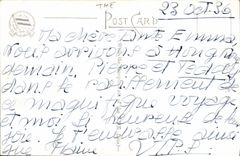 THE
POST CARD
23 oct 36
Ma chère Tante Emma
nous arrivons à Hong
demain. Pierre et
dans le ravissement de
ce magnifique voyage
et moi si heureuse de
joie. Je t'embrasse ainsi
que